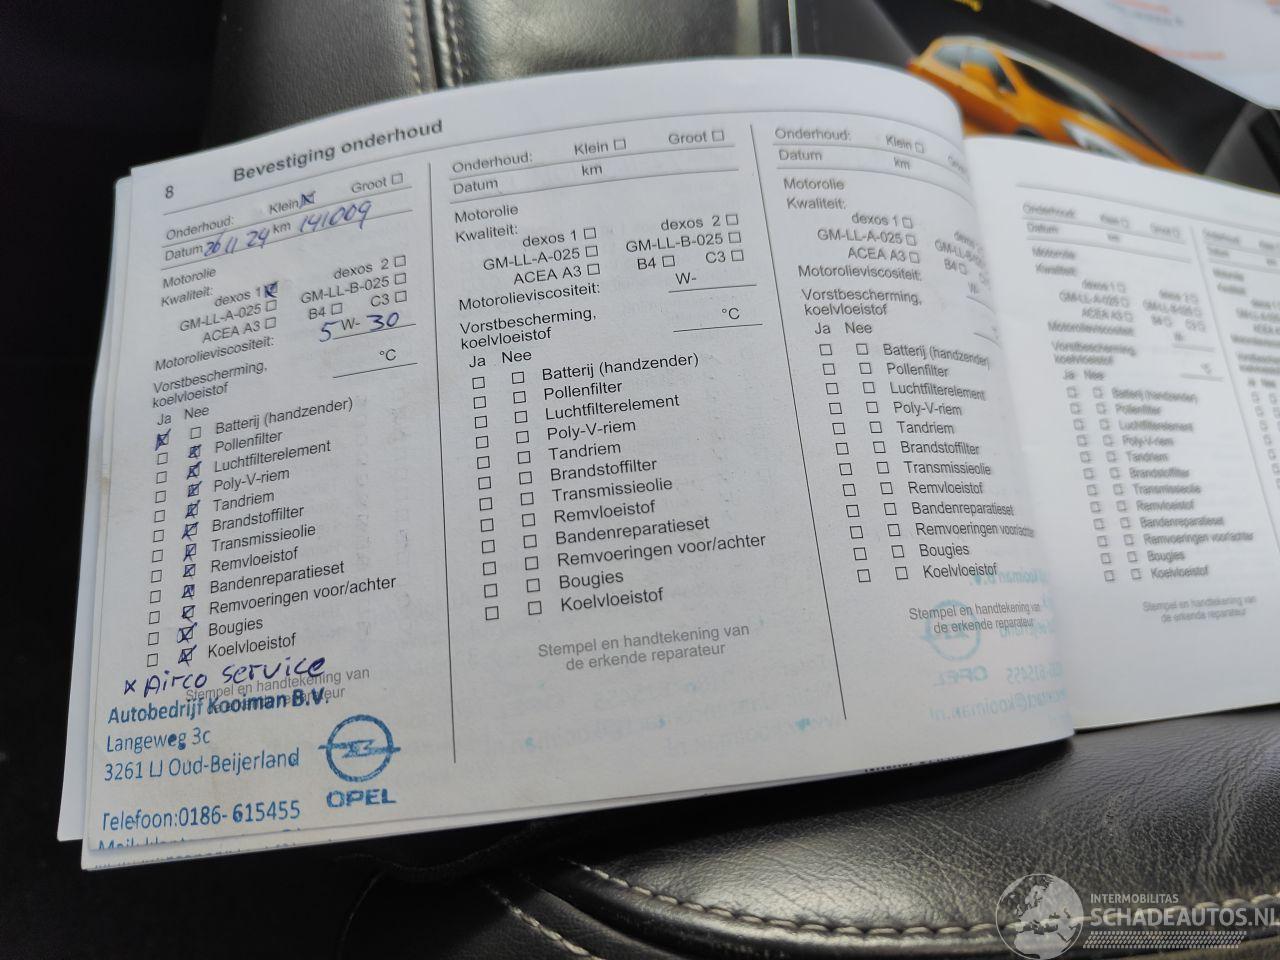 8 Bevestiging onderhoud
Onderhoud: Klein Groot
Datum 26 11 24 km 141009
Motorolie
Kwaliteit:
dexos 1 dexos 2
GM-LL-A-025 GM-LL-B-025
ACEA A3 B4 C3
Motorolieviscositeit: 5 W- 30
Vorstbescherming,
koelvloeistof °C
Ja Nee
Batterij (handzender)
Pollenfilter
Luchtfilterelement
Poly-V-riem
Tandriem
Brandstoffilter
Transmissieolie
Remvloeistof
Bandenreparatieset
Remvoeringen voor/achter
Bougies
Koelvloeistof
x Airco service
Stempel en handtekening van
de erkende reparateur
Autobedrijf Kooiman B.V.
Langeweg 3c
3261 LJ Oud-Beijerland
Telefoon:0186- 615455
OPEL
Onderhoud: Klein Groot
Datum km
Motorolie
Kwaliteit:
dexos 1 dexos 2
GM-LL-A-025 GM-LL-B-025
ACEA A3 B4 C3
Motorolieviscositeit: W-
Vorstbescherming,
koelvloeistof °C
Ja Nee
Batterij (handzender)
Pollenfilter
Luchtfilterelement
Poly-V-riem
Tandriem
Brandstoffilter
Transmissieolie
Remvloeistof
Bandenreparatieset
Remvoeringen voor/achter
Bougies
Koelvloeistof
Stempel en handtekening van
de erkende reparateur
Onderhoud: Klein
Datum km
Motorolie
Kwaliteit:
dexos 1
GM-LL-A-025
ACEA A3 B4
Motorolieviscositeit: W-
Vorstbescherming,
koelvloeistof
Ja Nee
Batterij (handzender)
Pollenfilter
Luchtfilterelement
Poly-V-riem
Tandriem
Brandstoffilter
Transmissieolie
Remvloeistof
Bandenreparatieset
Remvoeringen voor/achter
Bougies
Koelvloeistof
Stempel en handtekening van
de erkende reparateur
Onderhoud: Klein Groot
Datum km
Motorolie
Kwaliteit:
dexos 1 dexos 2
GM-LL-A-025 GM-LL-B-025
ACEA A3 B4 C3
Motorolieviscositeit: W-
Vorstbescherming,
koelvloeistof °C
Ja Nee
Batterij (handzender)
Pollenfilter
Luchtfilterelement
Poly-V-riem
Tandriem
Brandstoffilter
Transmissieolie
Remvloeistof
Bandenreparatieset
Remvoeringen voor/achter
Bougies
Koelvloeistof
Stempel en handtekening van
de erkende reparateur
INTERMOBILITAS
SCHADEAUTOS.NL